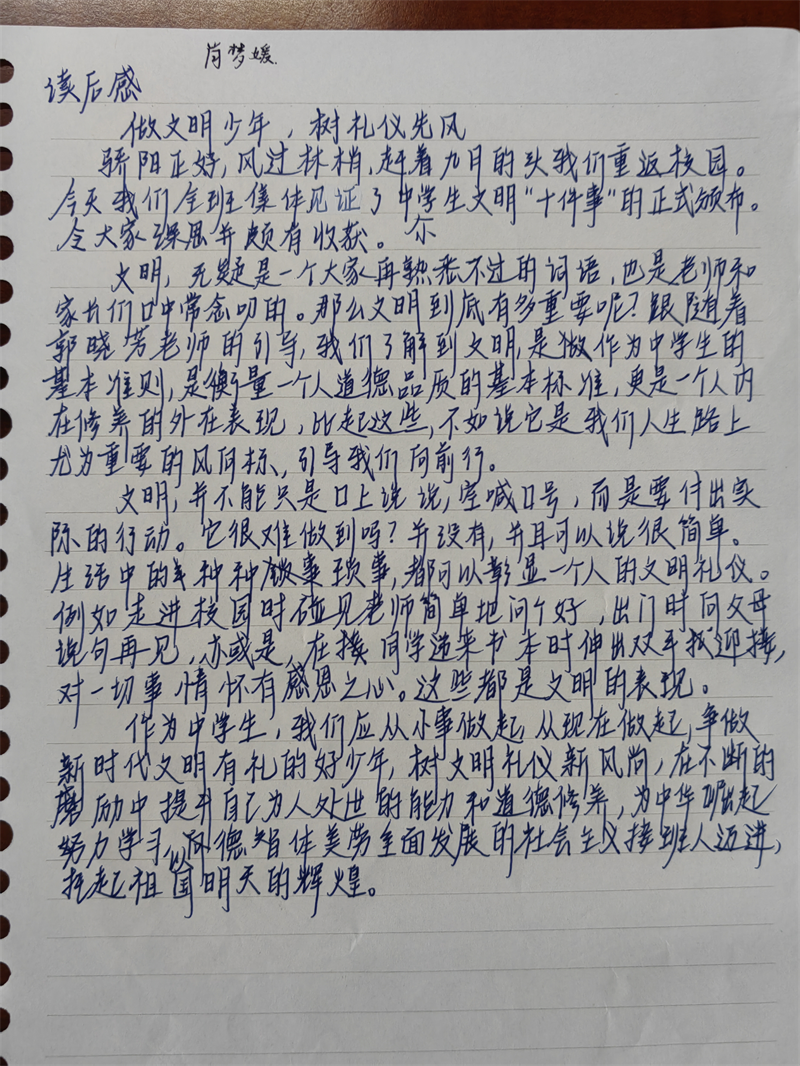 肖梦媛.
读后感
做文明少年，树礼仪先风
骄阳正好，风过林梢，赶着九月的头我们重返校园。
今天我们全班集体见证了中学生文明“十件事”的正式颁布。
令大家深思并颇有收获。
文明，无疑是一个大家再熟悉不过的词语，也是老师和
家长们口中常念叨的。那么文明到底有多重要呢？跟随着
郭晓芳老师的引导，我们了解到文明，是做作为中学生的
基本准则，是衡量一个人道德品质的基本标准，更是一个人内
在修养的外在表现，比起这些，不如说它是我们人生路上
尤为重要的风向标，引导我们向前行。
文明，并不能只是口上说说，空喊口号，而是要付出实
际的行动。它很难做到吗？并没有，并且可以说很简单。
生活中的种种琐事，都可以彰显一个人的文明礼仪。
例如走进校园时碰见老师简单地问个好，出门时向父母
说句再见，亦或是，在接同学递来书本时伸出双手迎接，
对一切事情怀有感恩之心。这些都是文明的表现。
作为中学生，我们应从小事做起，从现在做起，争做
新时代文明有礼的好少年，树文明礼仪新风尚，在不断的
磨励中提升自己为人处世的能力和道德修养，为中华崛起
努力学习，以向德智体美劳全面发展的社会主义接班人迈进，
托起祖国明天的辉煌。